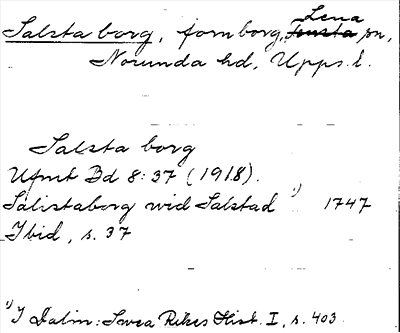 Salsta borg, fornborg, Lena sn,
Norunda hd, Upps. l.
Salsta borg
Ufmt Bd 8:37 (1918).
Salistaborg wid Salstad 1) 1747
Ibid, s. 37
1) I Dalin: Svea Rikes Hist. I, s. 403.